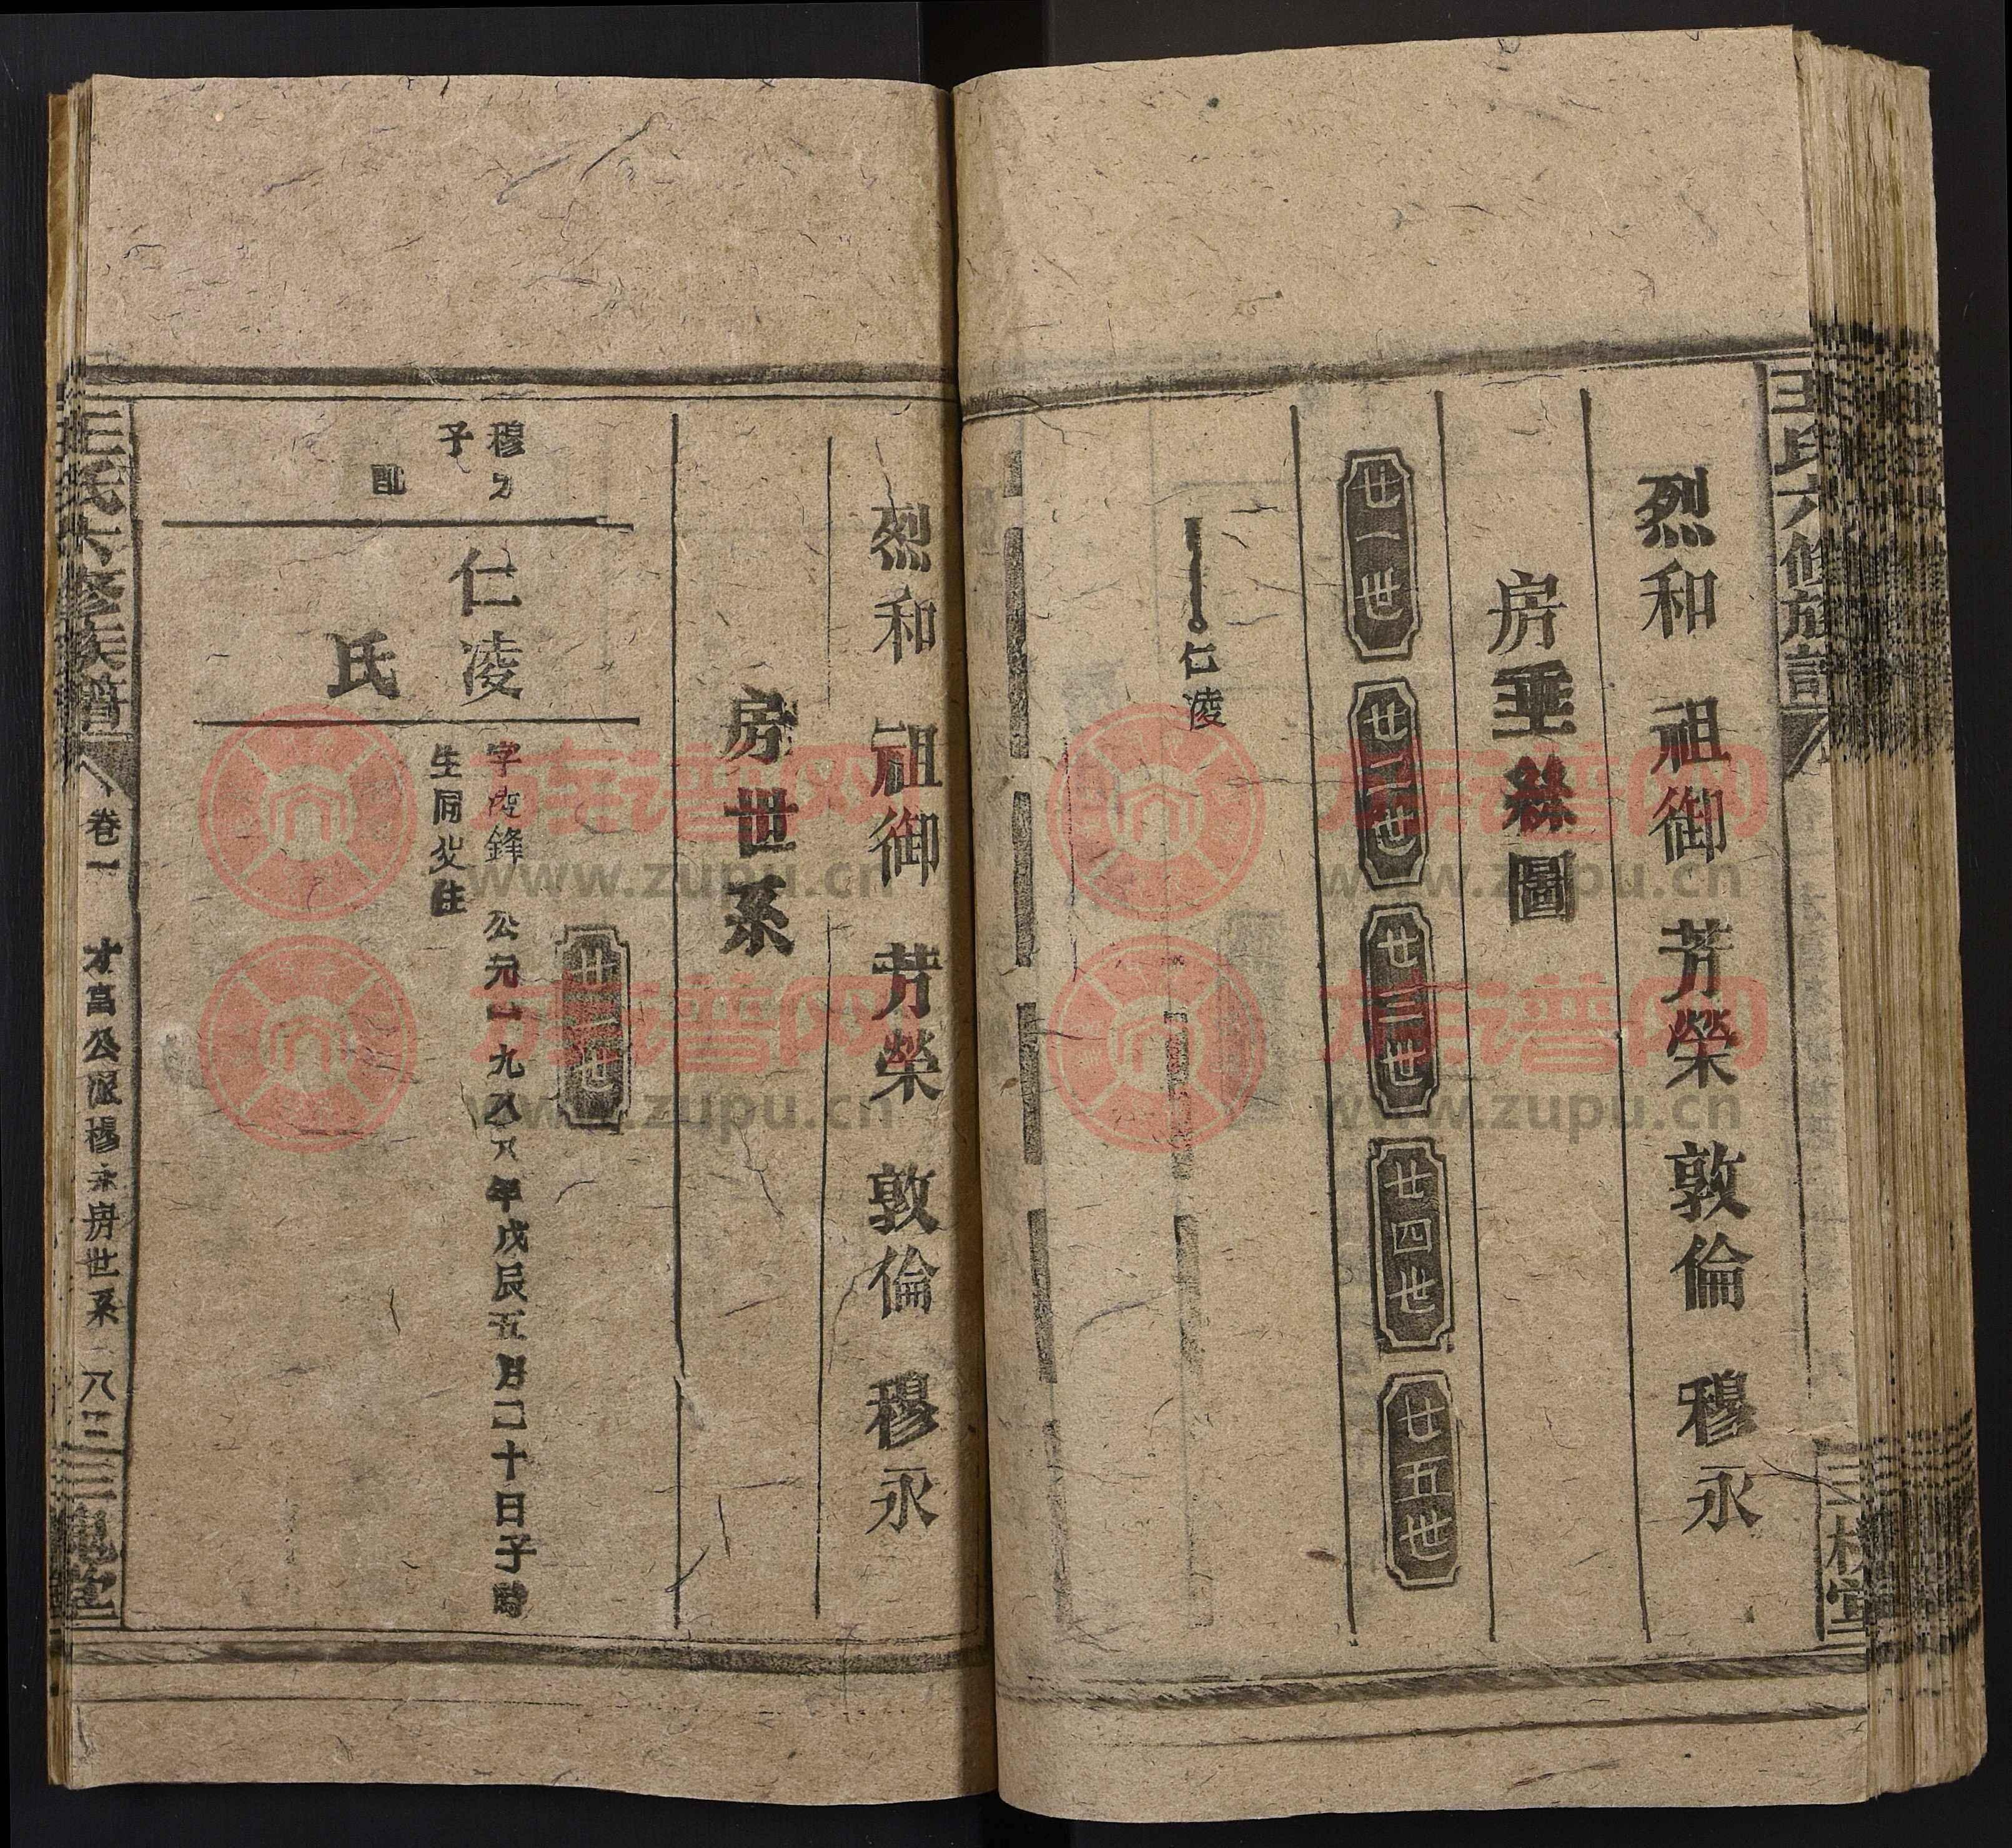 王氏六修族譜
三槐堂
烈和 祖御 芳榮 敦倫 穆永
房垂絲圖
廿一世 廿二世 廿三世 廿四世 廿五世
仁凌
烈和 祖御 芳榮 敦倫 穆永
房世系
廿一世
穆
子
配
仁凌
氏
字凌鋒 公元一九八八年戊辰五月二十日子時
生同父住
王氏六修族譜
卷一
才富公派穆永房世系
八三
三槐堂
族谱网
www.zupu.cn
族谱网
www.zupu.cn
族谱网
www.zupu.cn
族谱网
www.zupu.cn